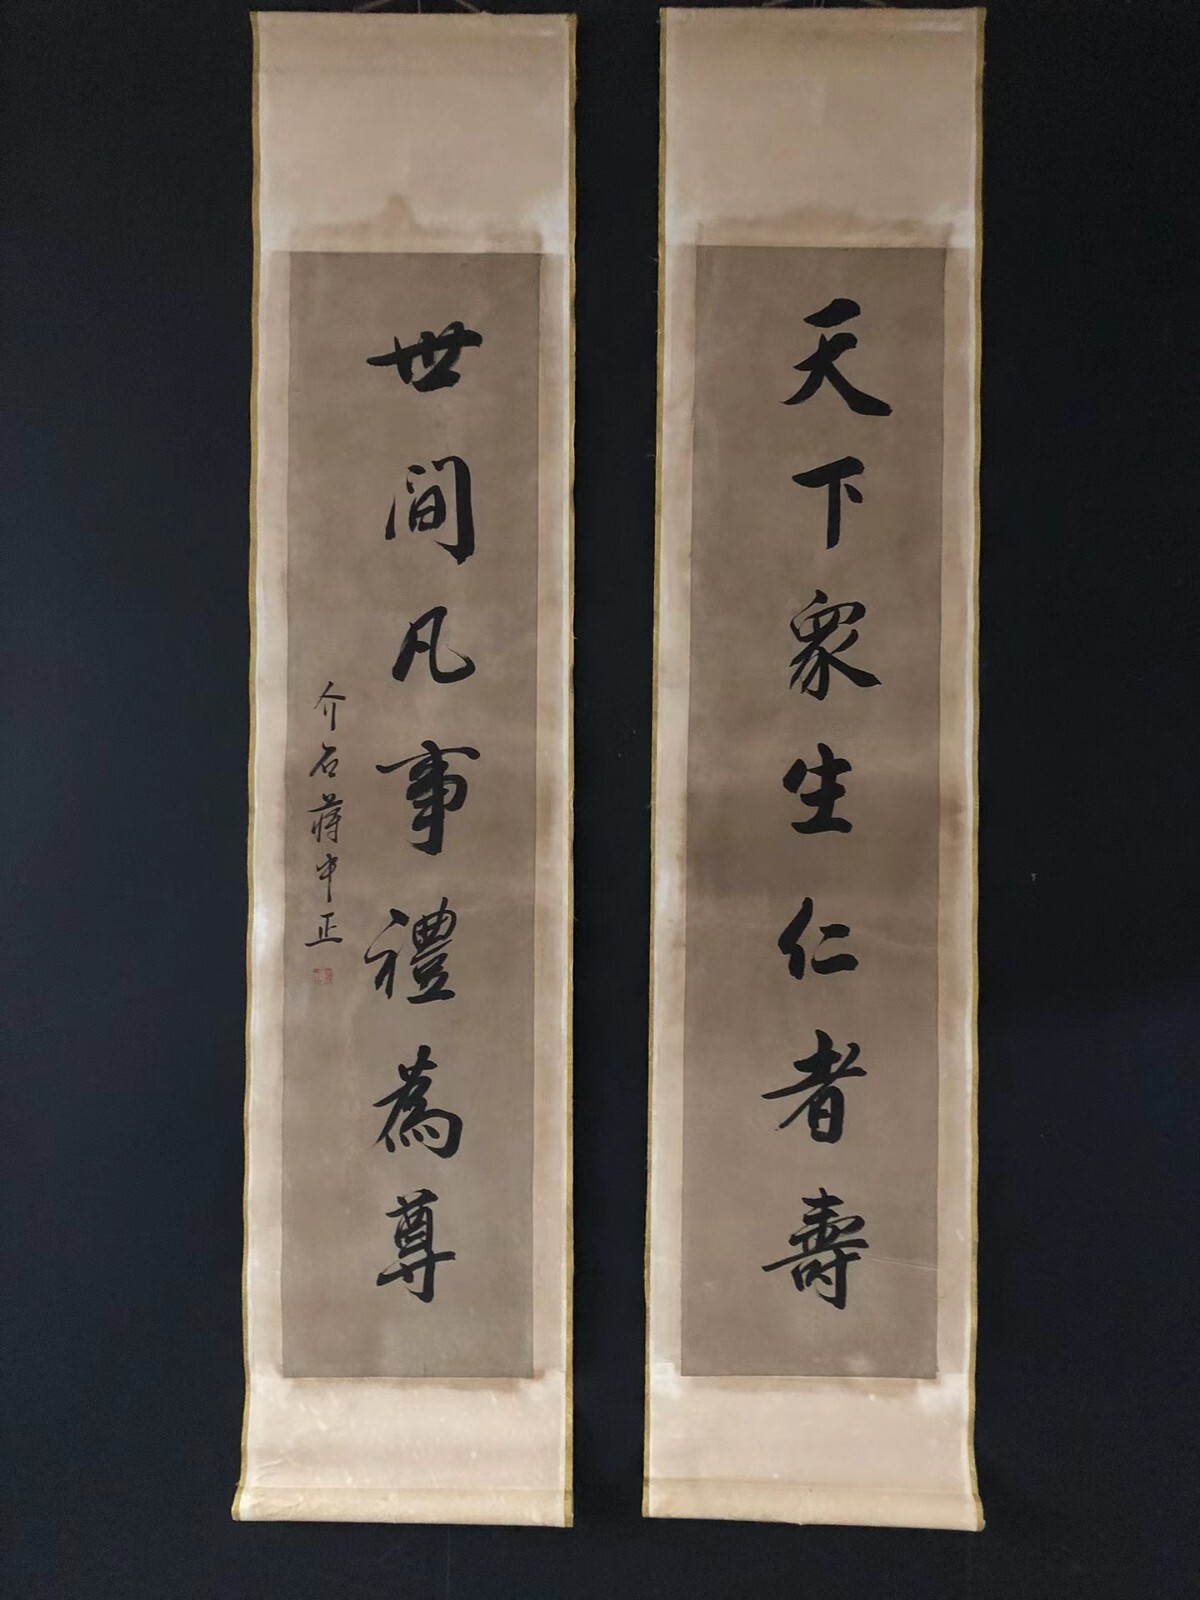 天下衆生仁者壽
世間凡事禮為尊
介石蔣中正